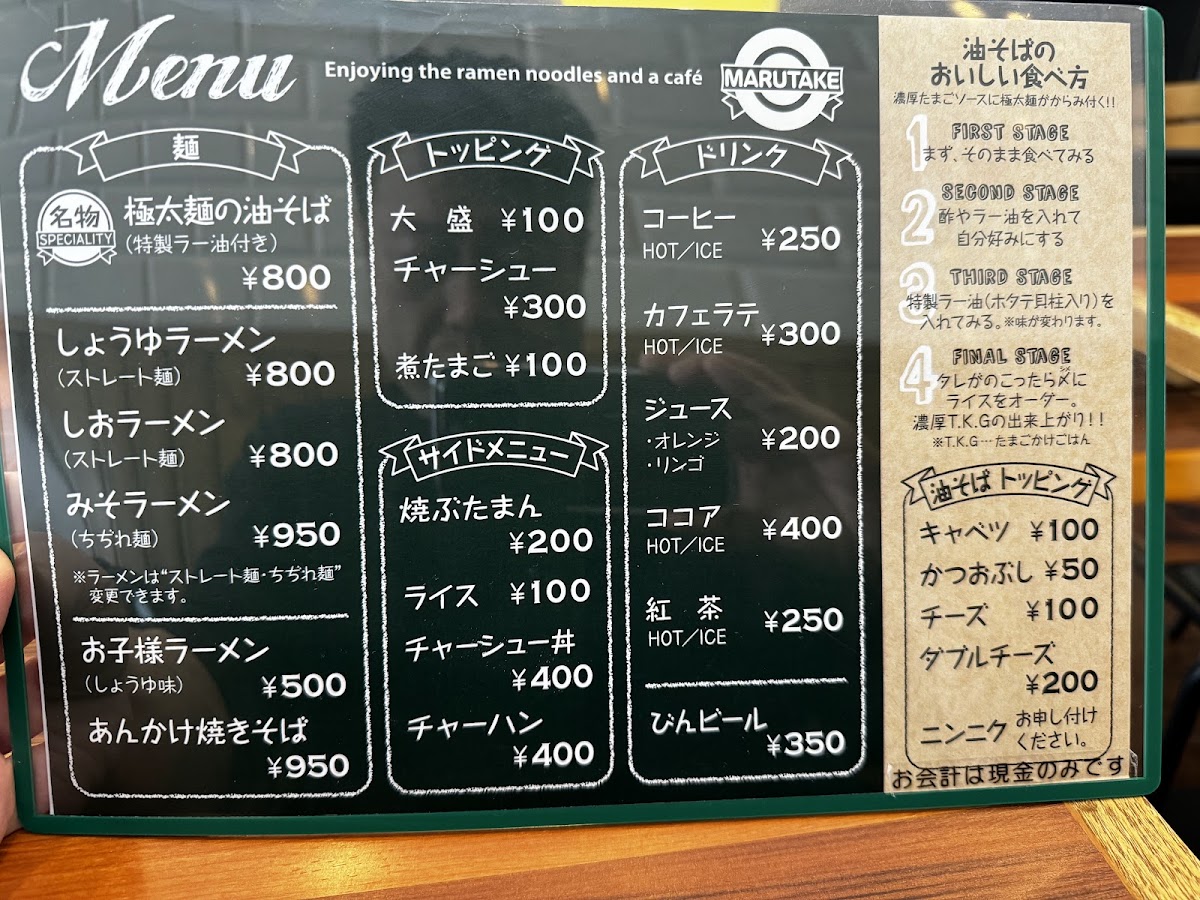 Menu
Enjoying the ramen noodles and a café
MARUTAKE
麺
名物
SPECIALITY
極太麺の油そば
(特製ラー油付き)
¥800
しょうゆラーメン
(ストレート麺) ¥800
しおラーメン
(ストレート麺) ¥800
みそラーメン
(ちぢれ麺) ¥950
※ラーメンは“ストレート麺・ちぢれ麺”
変更できます。
お子様ラーメン
(しょうゆ味) ¥500
あんかけ焼きそば
¥950
トッピング
大 盛 ¥100
チャーシュー
¥300
煮たまご ¥100
サイドメニュー
焼ぶたまん
¥200
ライス ¥100
チャーシュー丼
¥400
チャーハン
¥400
ドリンク
コーヒー
HOT/ICE ¥250
カフェラテ
HOT/ICE ¥300
ジュース
・オレンジ ¥200
・リンゴ
ココア
HOT/ICE ¥400
紅 茶
HOT/ICE ¥250
びんビール
¥350
油そばの
おいしい食べ方
濃厚たまごソースに極太麺がからみ付く!!
1 FIRST STAGE
まず、そのまま食べてみる
2 SECOND STAGE
酢やラー油を入れて
自分好みにする
3 THIRD STAGE
特製ラー油(ホタテ貝柱入り)を
入れてみる。※味が変わります。
4 FINAL STAGE
タレがのこったら〆に
ライスをオーダー。
濃厚T.K.Gの出来上がり!!
※T.K.G…たまごかけごはん
油そば トッピング
キャベツ ¥100
かつおぶし ¥50
チーズ ¥100
ダブルチーズ
¥200
ニンニク お申し付け
ください。
お会計は現金のみです